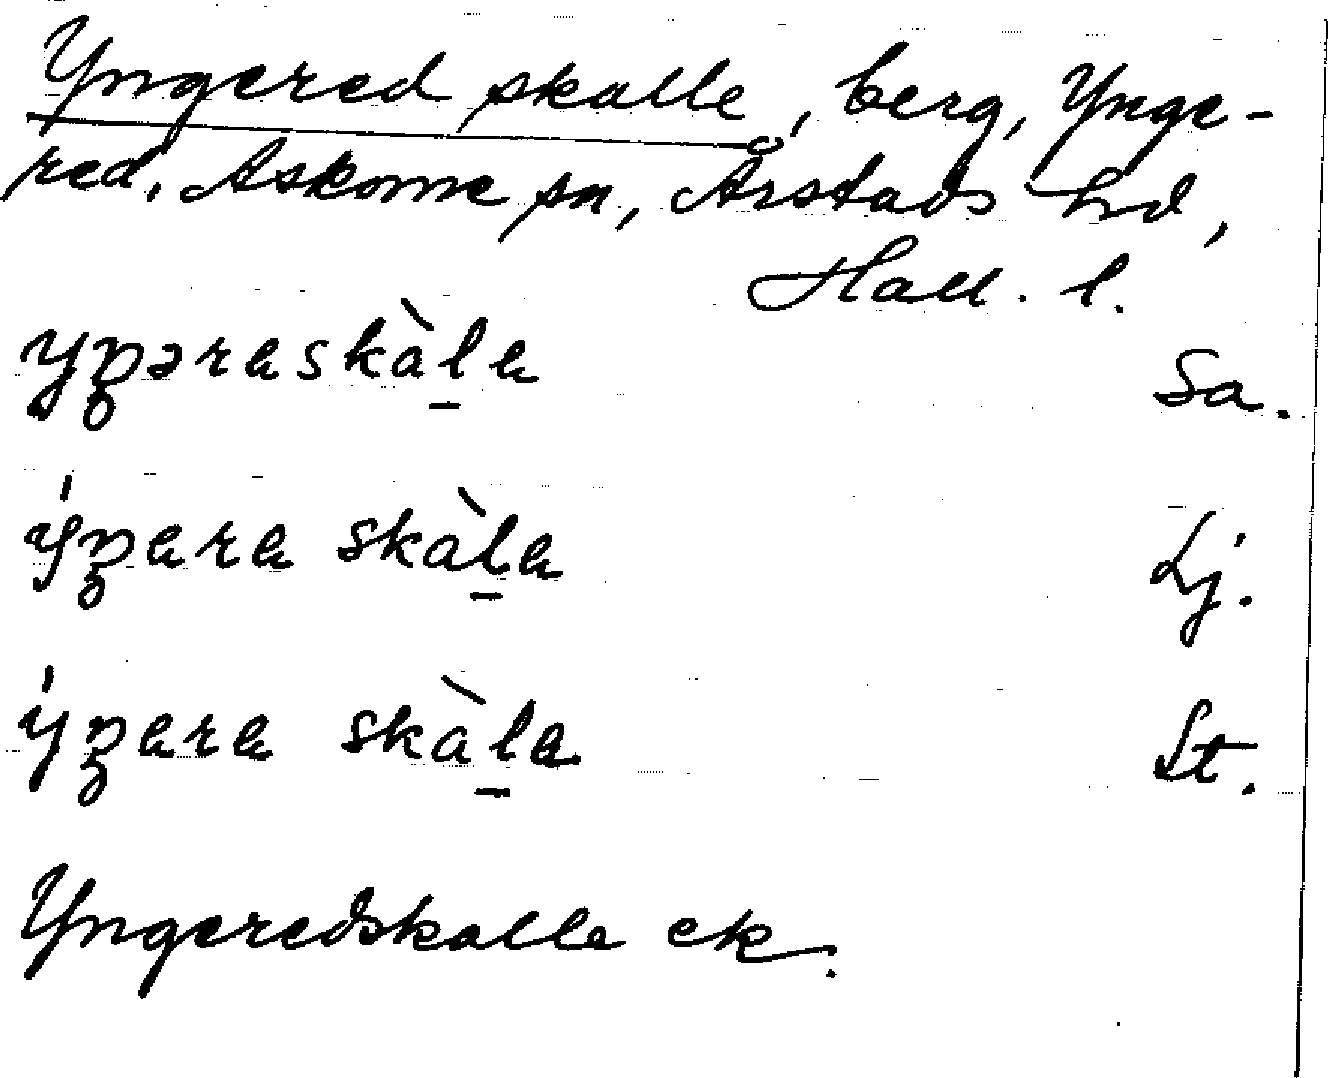 Yngered skalle, berg, Ynge-
red, Askome sn, Årstads hd,
Hall. l.
yŋəraskàl̠a Sa.
ýŋara skàl̠a Lj.
ýŋara skàl̠a St.
Yngeredskalle ek.